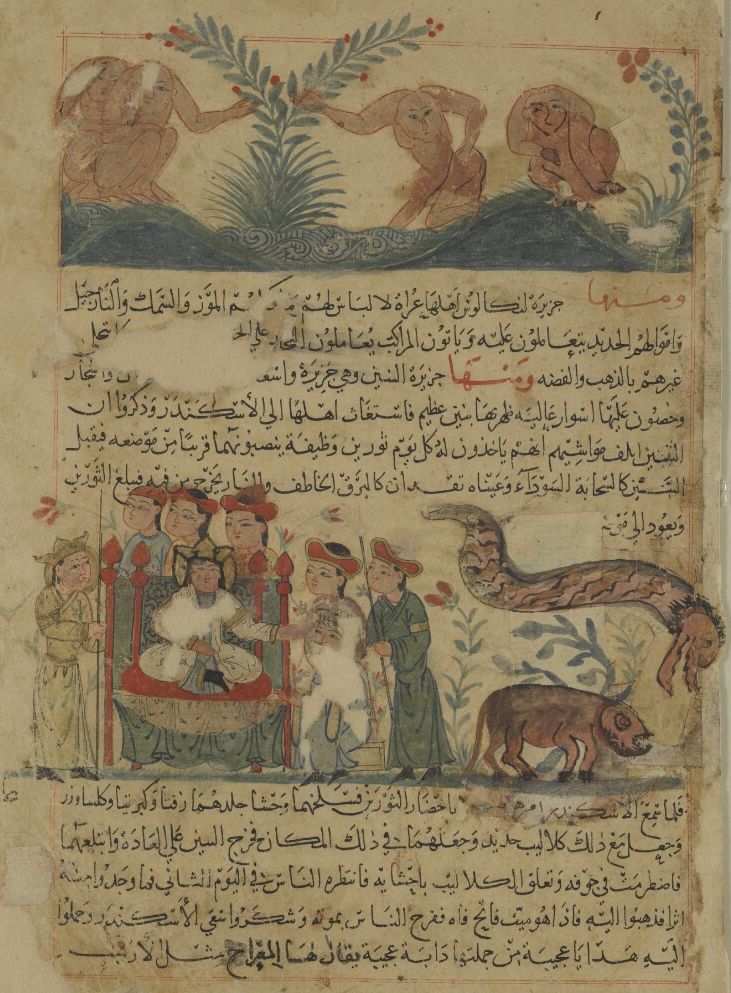 ومنها جزيرة لنكالوس اهلها عراة لا لباس لهم الموز والسمك والنارجيل
واموالهم الحديد يتعاملون عليه وياتون المراكب يعاملون التجار علي
غيرهم بالذهب والفضه ومنها جزيرة التنين وهي جزيرة واسعة واشجار
وحصون عليها اسوار عالية ظهر بها تنين عظيم فاستغاث اهلها الي الاسكندر وذكروا ان
التنين اتلف مواشيهم انهم ياخذون له كل يوم ثورين وظيفة ينصبونهما قريبا من موضعه فيقبل
التنين كالسحابة السوداء وعيناه تقدان كالبرق الخاطف والنار يخرج من فيه فيبلع الثورين
ويعود الي
فلما سمع الاسكندر امر باحضار الثورين فسلخهما وحشا جلدهما زفتا وكبريتا وكلسا وزر
وجعل مع ذلك كلاليب حديد وجعلهما في ذلك المكان فخرج التنين علي العادة وابتلعهما
فاضطرمت في جوفه وتعلق الكلاليب باحشايه فانتظره الناس في اليوم الثاني فما وجدوا منه
اثرا فذهبوا اليه فاذا هو ميت فاتح فاه ففرح الناس بموته وشكروا سعي الاسكندر وحملوا
اليه هدايا عجيبة من جملتها دابة عجيبة يقال لها المعراج مثل الارنب